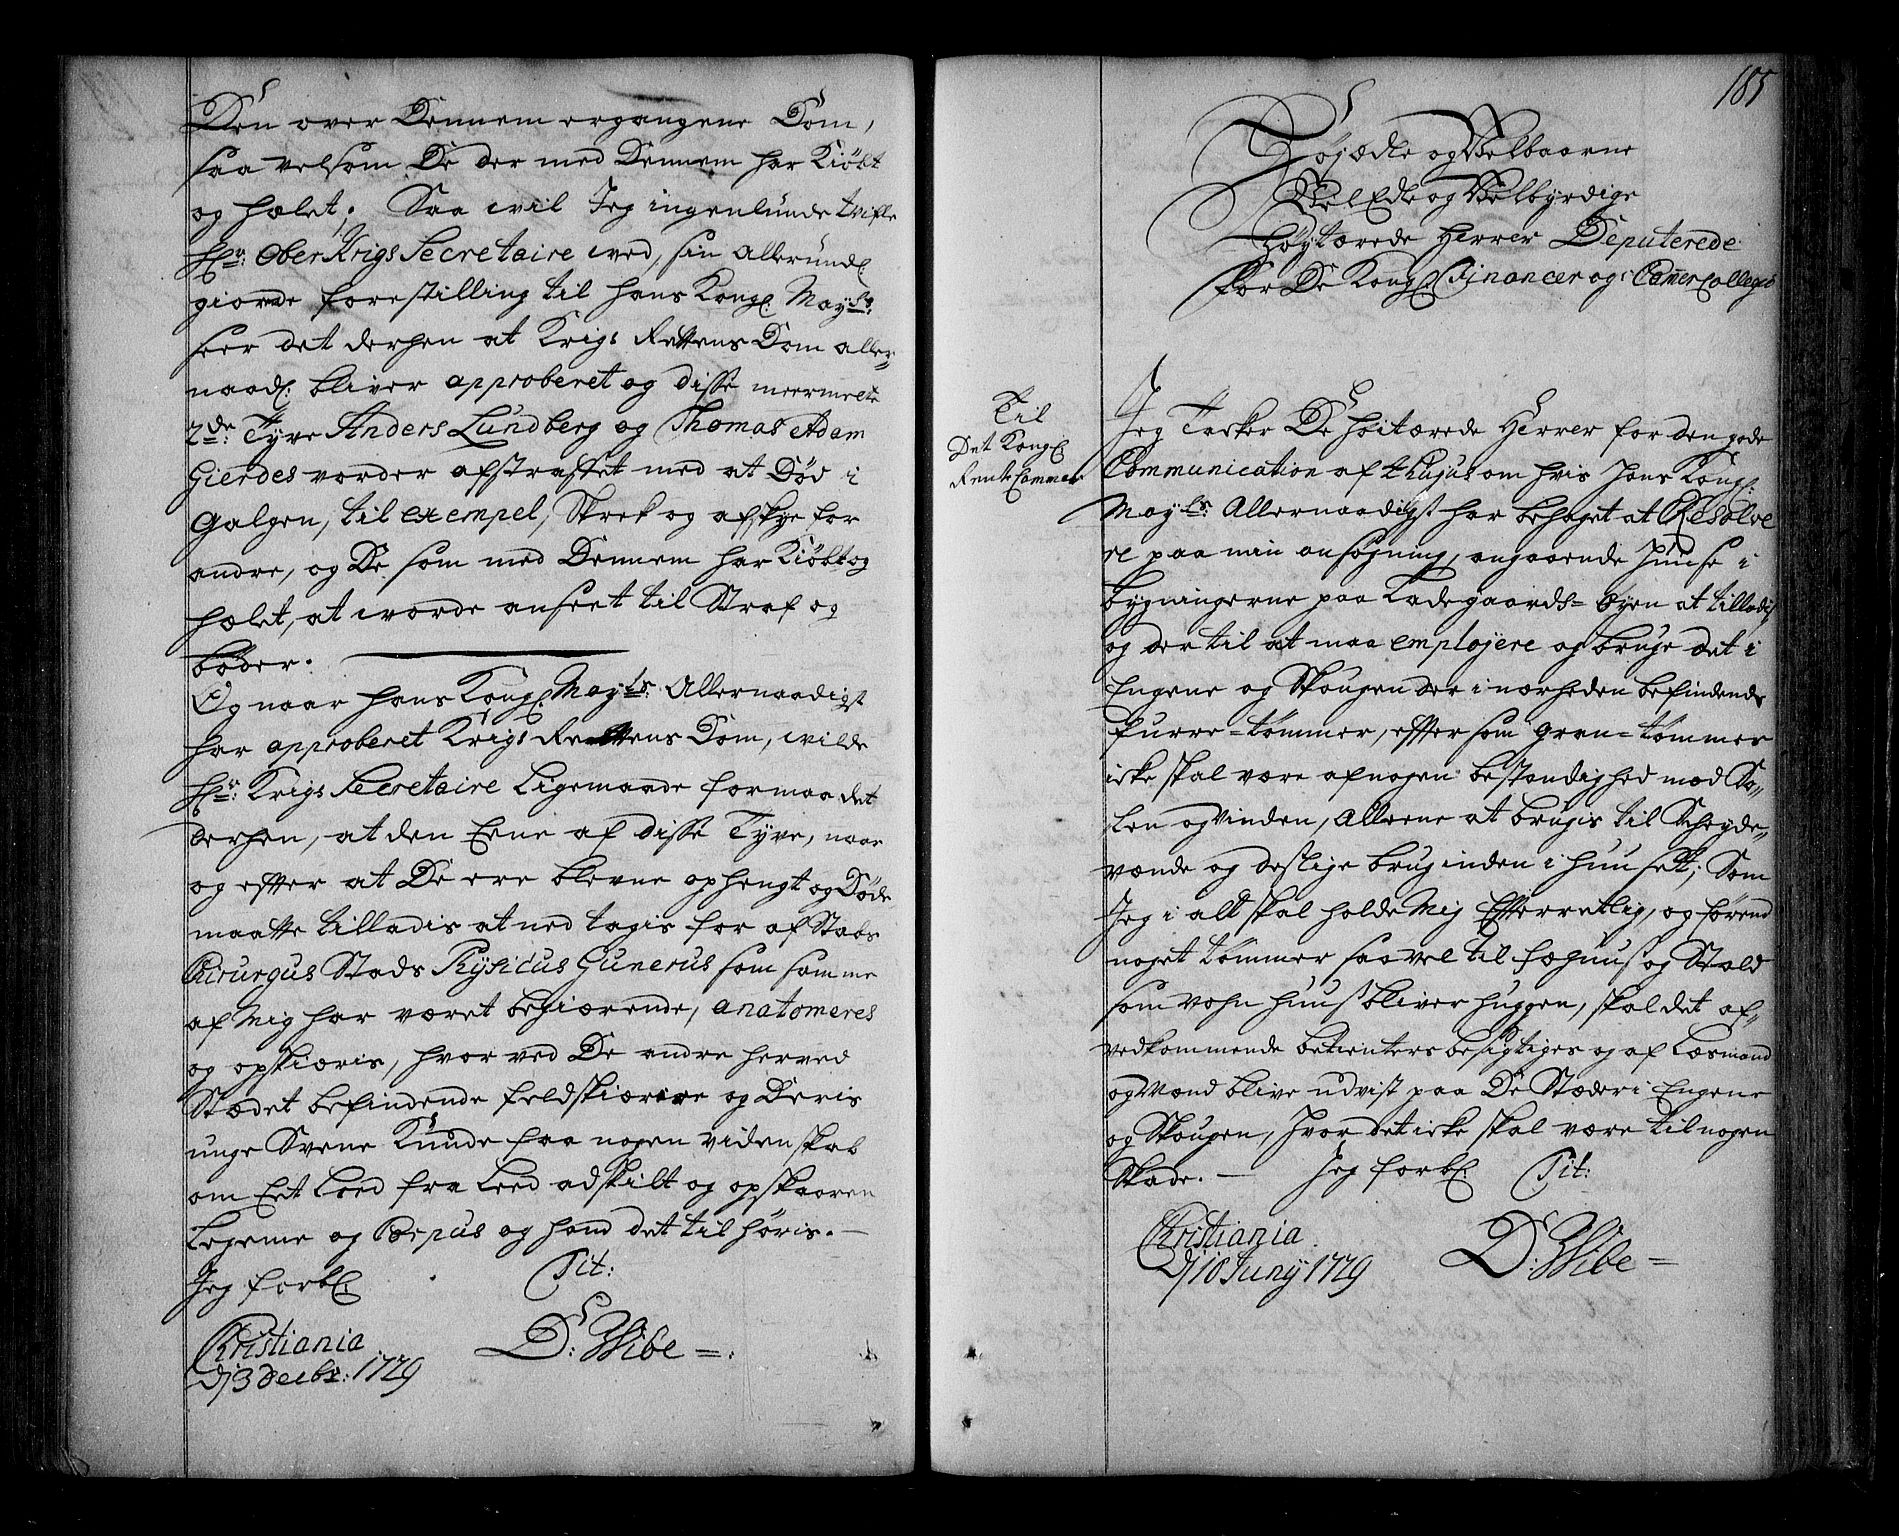 Den over Dennem ergangene Dom,
saa velsom De der med Dennem har Kiøbt
og hælet; Saa will Jeg ingenlunde tvifle
Hr: Ober Krigs Secretaire ved, sin allerundl:
giorde forestilling til hans Kongl: Mayts:
seer det derhen at Krigs Rettens Dom aller=
naadl: bliver approberet og disse meermelte
2de: Tyve Anders Lundberg og Thomas Adam
Gierdes vorder afstraffet med at Død i
Galgen, til exempel, Skrek og afskye for
andre, og De som med Dennem har Kiøbt og
hælet, at worde anseet til Straf og
bøder.
Og naar hans Kongl: Mayts: Allernaadigst
har approberet Krigs Rettens Dom, wilde
Hr: Krigs Secretaire Ligemaade formaa det
derhen, at den Eene af disse Tyve, naar
og efter at De ere blevne ophengt og Døde
maatte tilladis at ned tagis for af Stabs
Chirurgus Stads Physicus Gunerus som samme
af Mig har været begiærende, anatomeres
og opskiæris, hvor ved De andre herved
Stædet befindende feldskiærere og Deris
unge Svene Kunde faa nogen videnskab
om Eet Leed fra Leed adskilt og opskaaren
Legeme og Corpus og hvad det til høris.
Jeg forbl: Tit:
Christiania
d: 3 decbr: 1729 D: Wibe
185
Højædle og Velbaarne
Vel Edle og Velbyrdige
Høytærede Herrer Deputerede
for De Kongl: Financer og Camer Collegio
Til
Det Kongl:
Rente Cammer
Jeg Tacker De høitærede Herrer for den gode
Communication af thujus om hvis Hans Kongl:
Mayts: Allernaadigst har behaget at Resolve
re paa min ansøgning, angaaende Huuse i
bygningerne paa Ladegaards= Øyen at tilladis
og der til at maa emplojere og bruge det i
Engene og Skougen der i nærheden befindende
furre=tømmer, effter som gran=tømmer
icke skal være af nogen bestandighed mod So=
len og vinden, Alleene at brugis til Scheyde=
vænde og deslige brug inden i huuset; Som
Jeg i alt skal holde Mig Efterretlig, og førend
noget tømmer saavel til fæhuus og Stald
som vohn huus bliver huggen, skal det af
vedkommende betienters besigtiges og af Lœsmand
og Mænd blive udvist paa De Stæder i Engene
og Skougen, hvor det icke skal være til nogen
Skade. Jeg forbl: Tit:
Christiania
d: 10 Junij 1729 D: Wibe